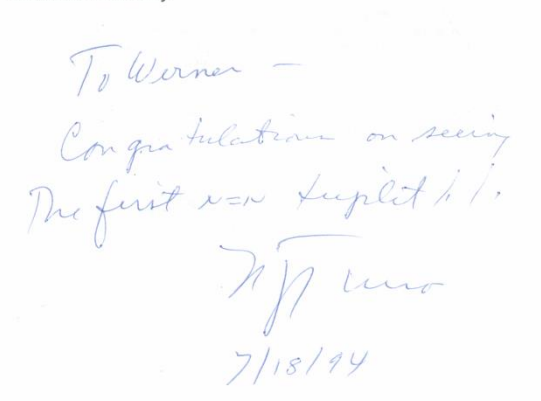 To Werner —
Congratulations on seeing
The first N=N triplet!!.
N J Turro
7/18/94